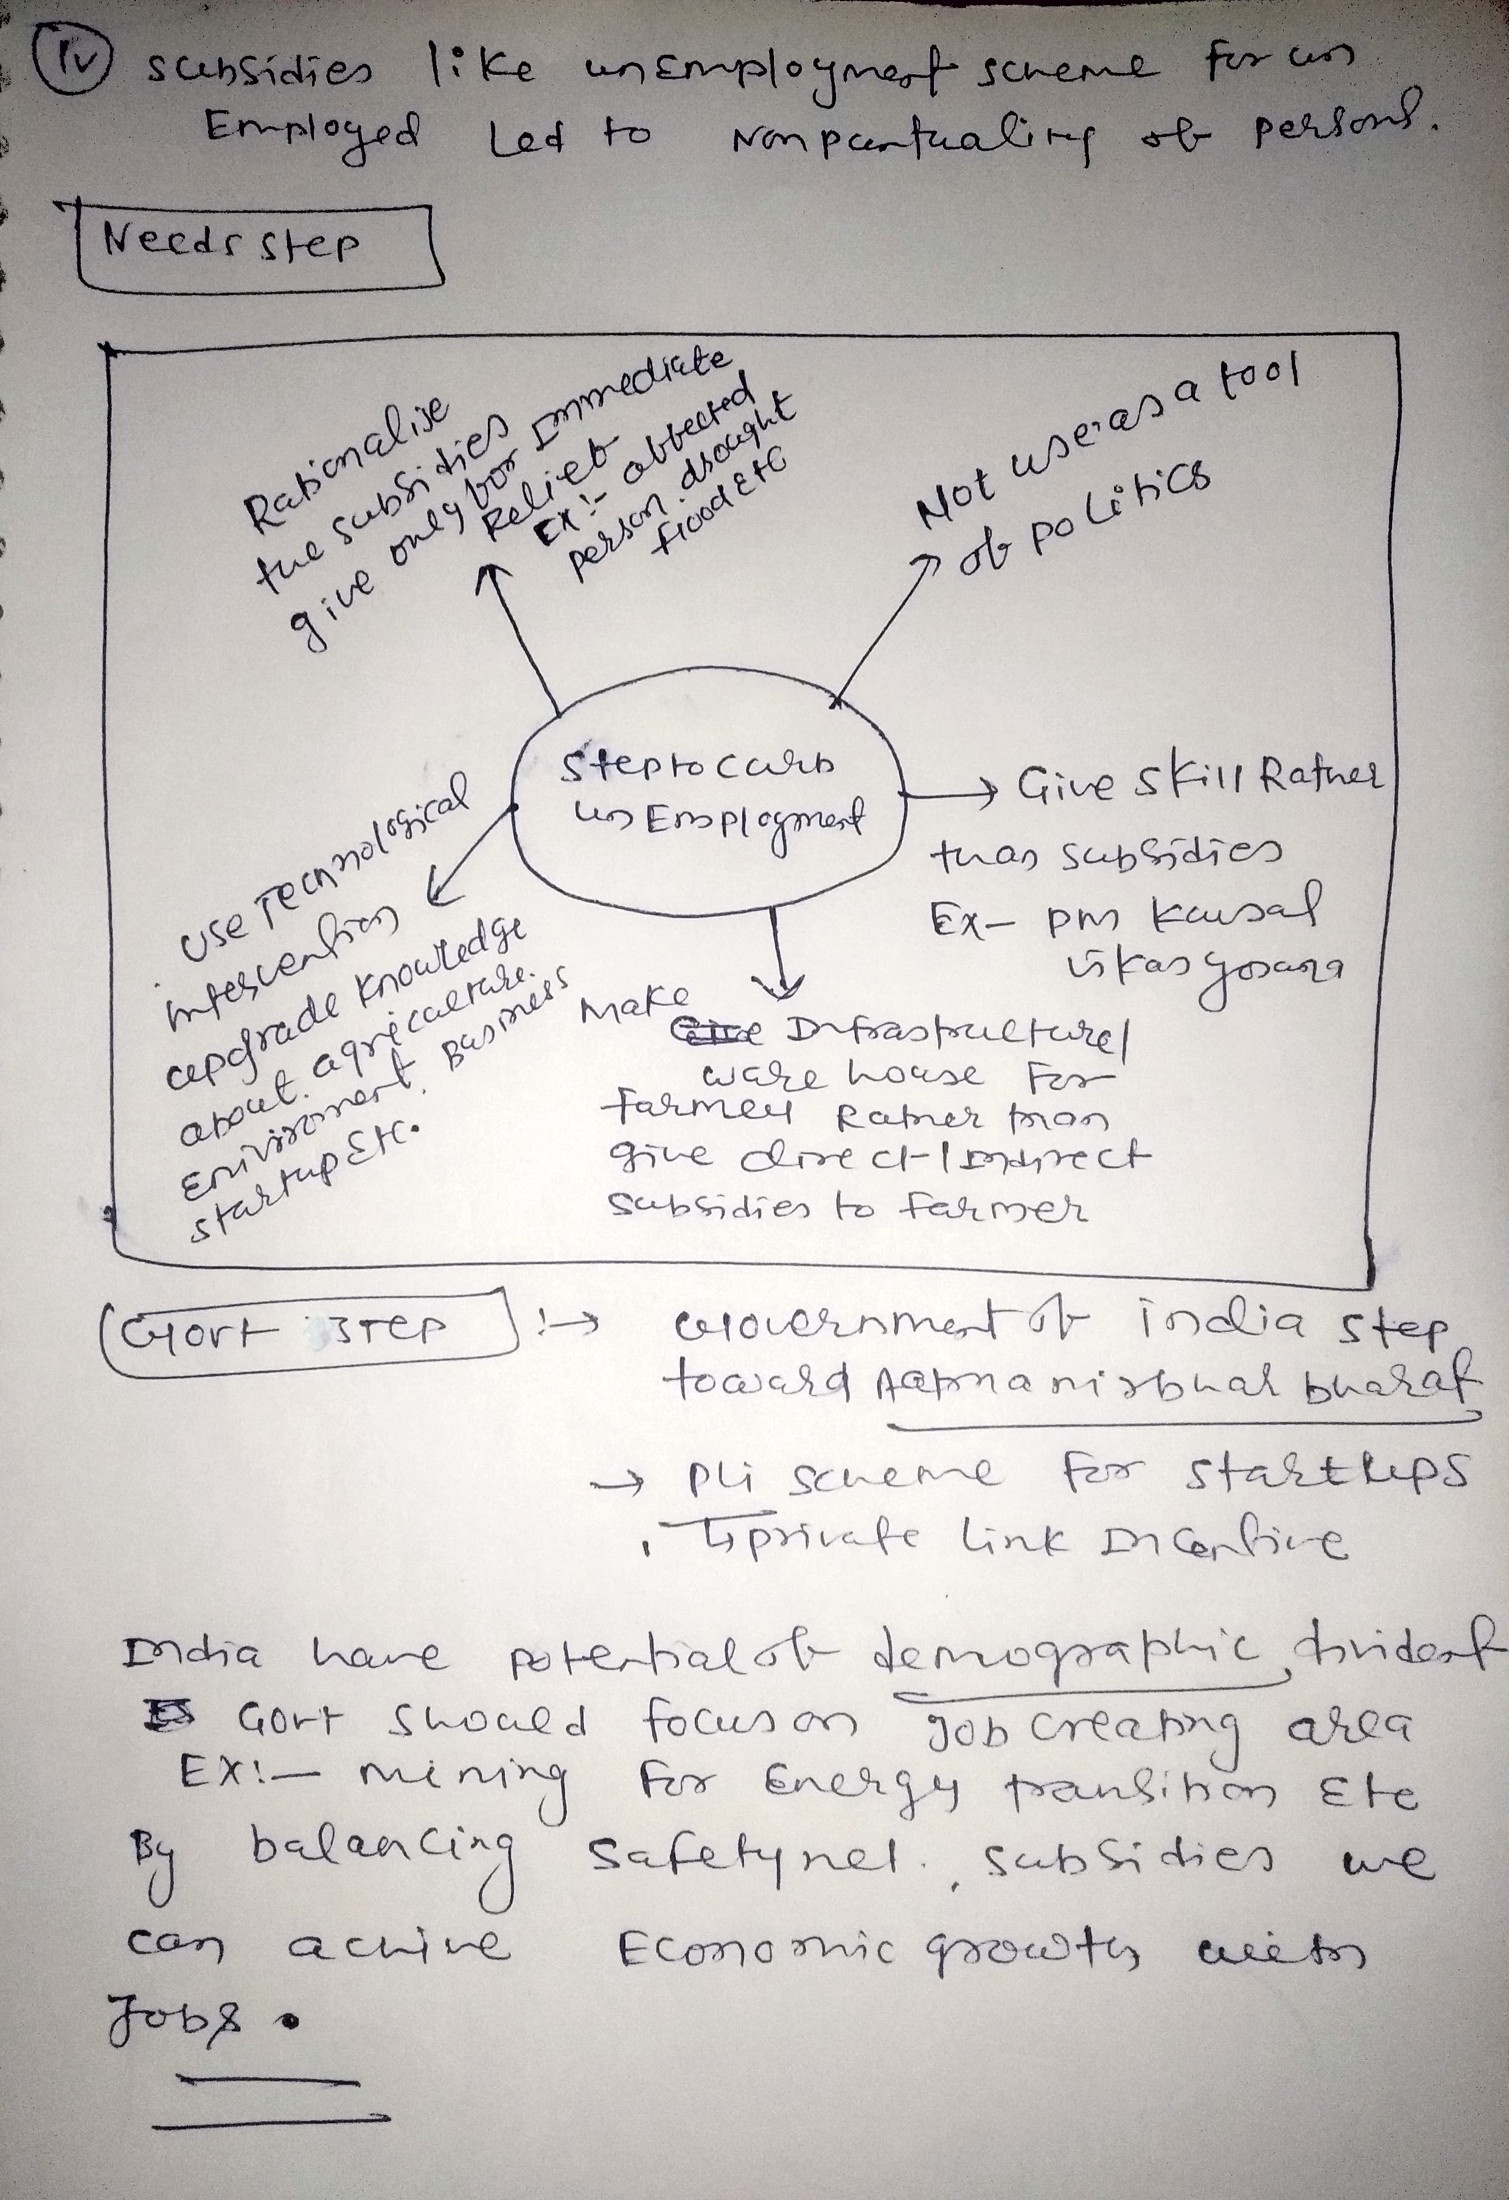 (iv) subsidies like unEmployment scheme for un
Employed Led to Nonpuntuality of persons.
Needs step
Rationalise
the subsidies
give only for Immediate
Relief
Ex:- affected
person. drought
flood Etc
Not use as a tool
of politics
Step to curb
unEmployment
→ Give skill Rather
than subsidies
Ex- pm kausal
vikas yojana
use Technological
intervention
upgrade knowledge
about. agriculture.
Environment. Business
startup Etc.
Make
Give Infrastructure/
ware house For
farmer Rather than
give direct/Indirect
subsidies to farmer
Govt step :→ Government of india step
toward Aatmanirbhar bharat
→ pli scheme for startups
↳ private link Incentive
India have potential of demographic dividend
Govt should focus on job creating area
EX:- mining for Energy transition Etc
By balancing safetynet. subsidies we
can achive Economic growth with
Jobs.